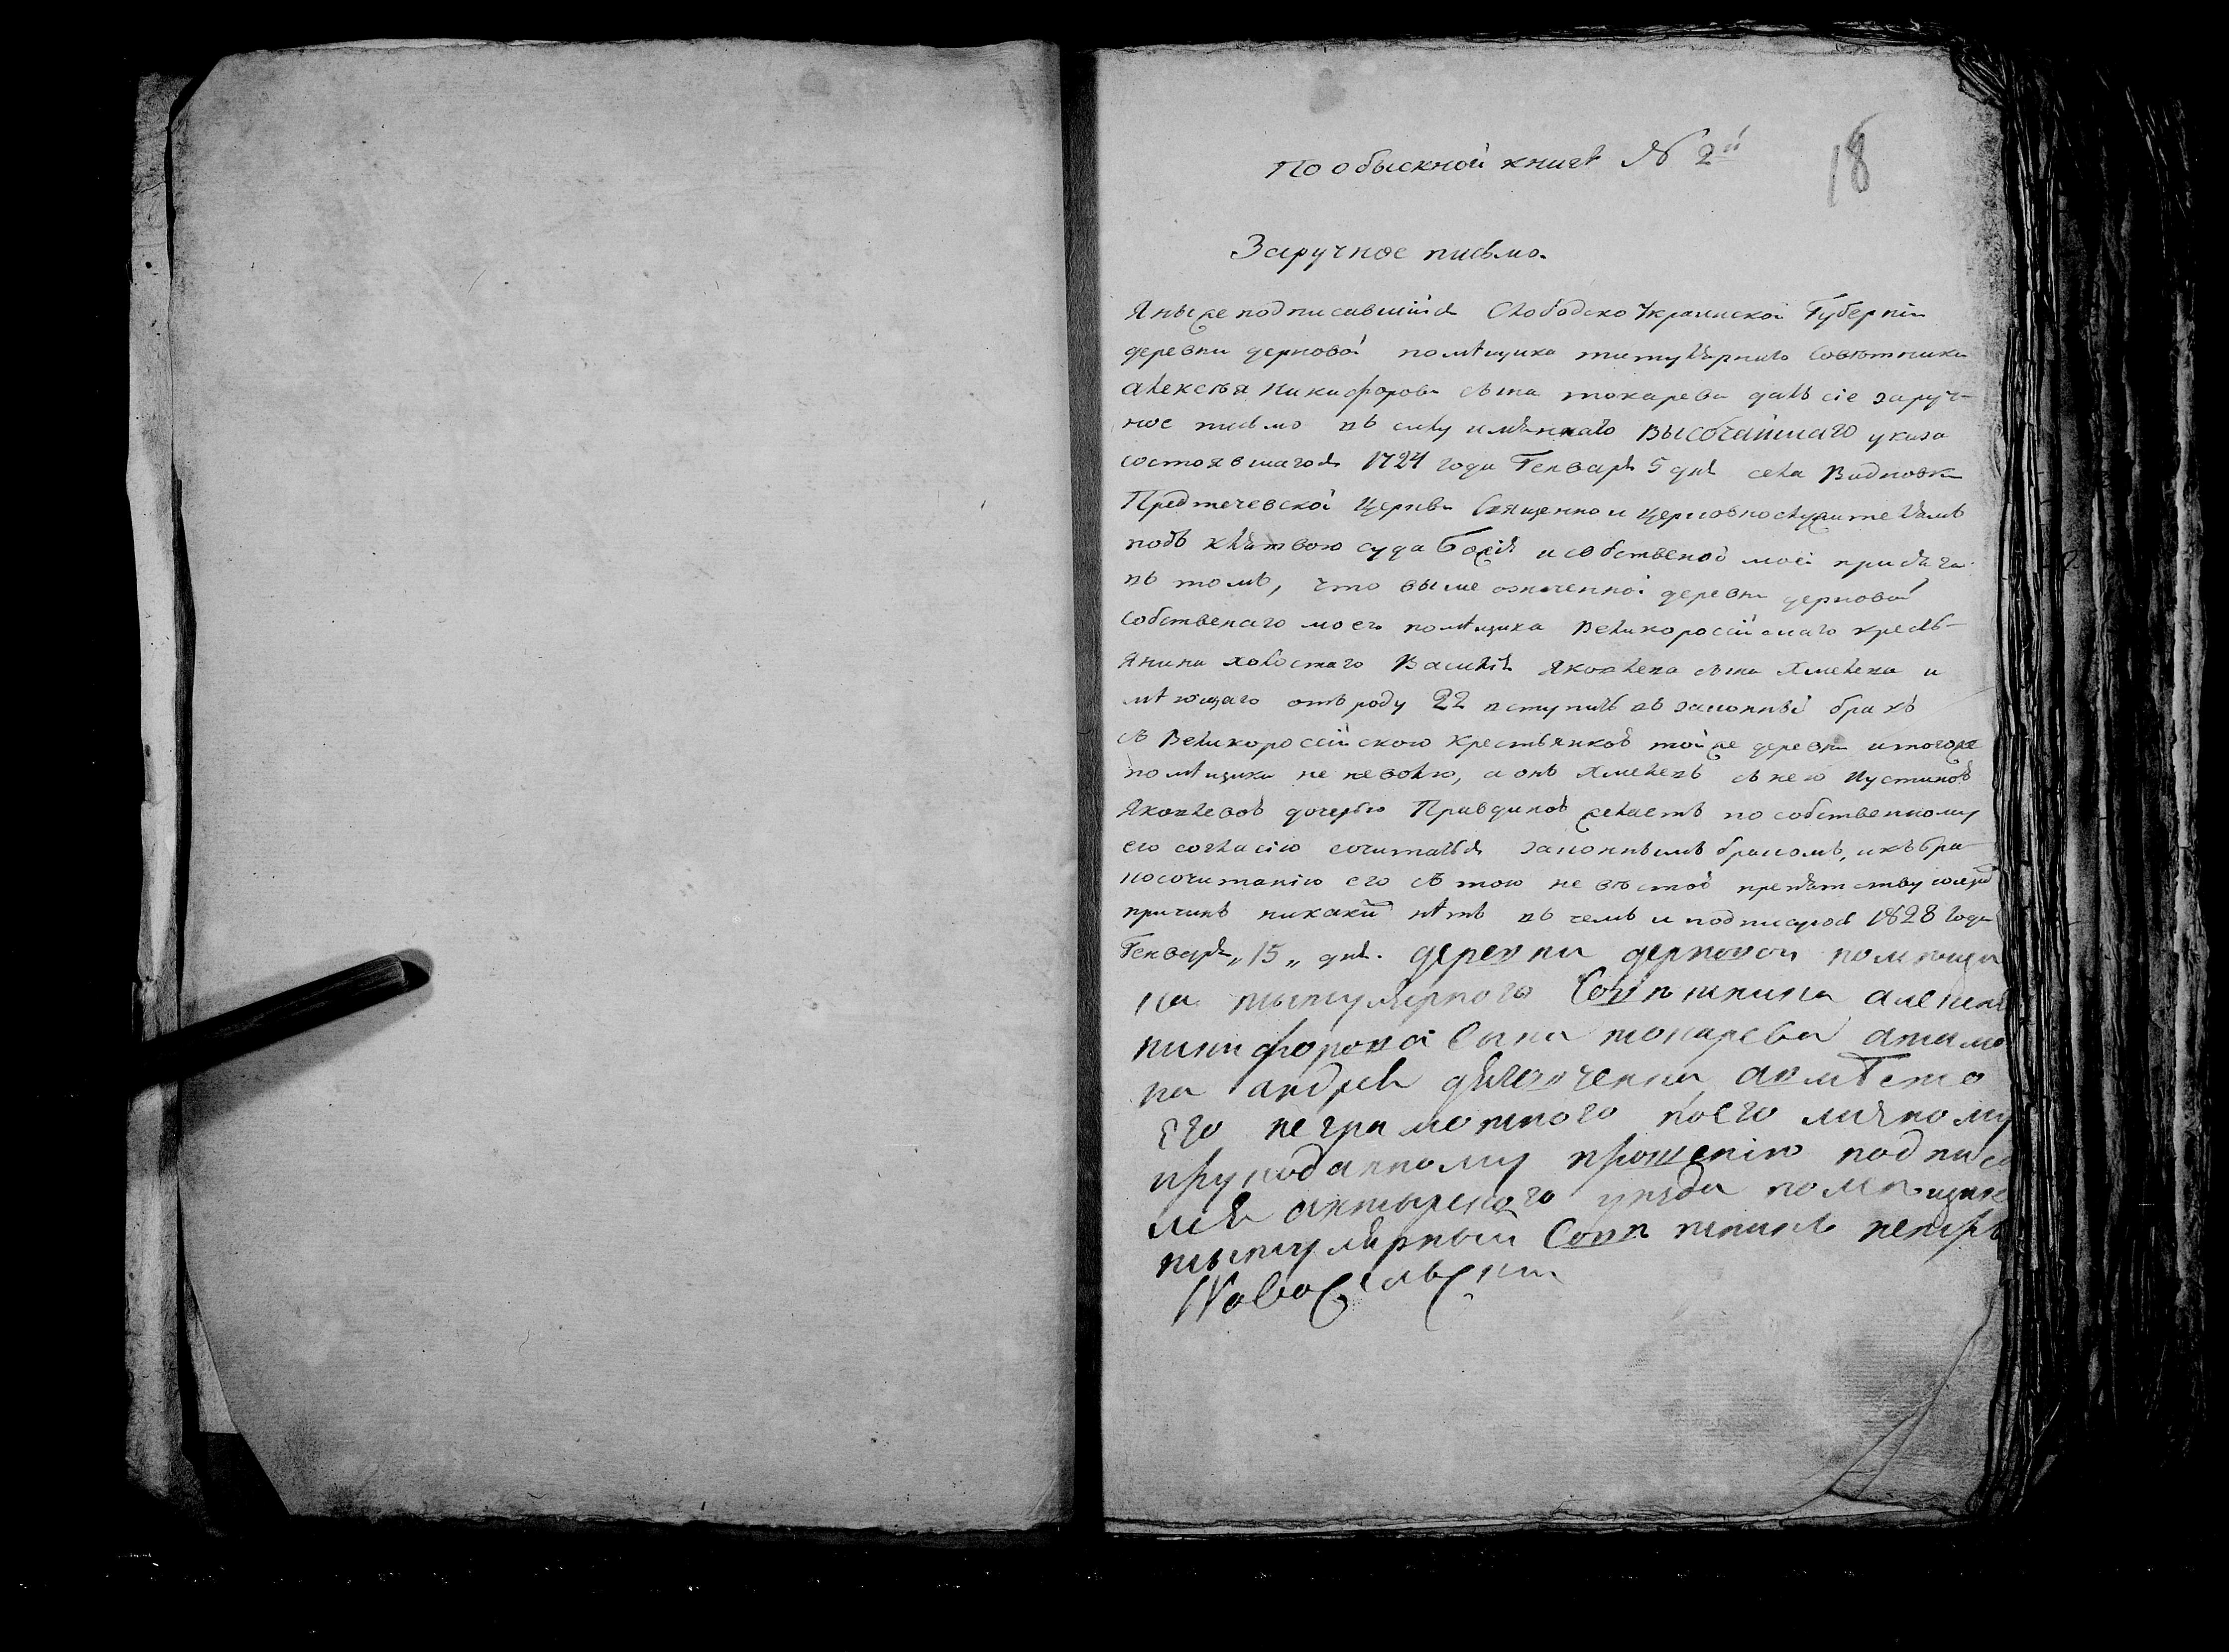 По обыскной книгѣ № 2й
18
Заручное письмо.
Я ниже подписавшійся Слободско Украинской Губерніи
деревни дерновой помѣщика титулярнаго Совѣтника
алексѣя Никифорова сына токарева далъ сіе заруч-
ное письмо въ силу имяннаго Высочайшаго указа
состоявшагося 1724 года Генваря 5 дня села
Предтечевской Церкви Священно и Церковнослужителямъ
подъ клятвою суда Божія и собственой моей присяги
въ томъ, что выше означенной деревни дерновой
собственаго моего помѣщика Великоросійскаго кресть-
янина холостаго Василія Яковлева сына Хмелева и
мѣющаго отъ роду 22 вступить въ законный бракъ
съ Великоросійскою крестьянкою той же деревни и тогоже
помѣщика не неволю, а онъ Хмелевъ съ нею Иустиною
Яковлевою дочерью Правдиною желаетъ по собственному
его согласію сочитатся законнымъ бракомъ, и къ бра-
косочитанію его съ тою невѣстою препятствующей
причинъ никакой нѣтъ въ чемъ и подписуюсь 1828 года
Генваря „15„ дня. деревни дерновой помѣщи
ка тытулярного Совѣтника алексѣя
никифорова Сына токарева атама
на андрей авмѣсто
Его неграмотного поего личному
ирукоданному прошенію подписа
лся ахтырского уѣзда помѣщикъ
тытулярный Совѣтникъ петръ
Новосельский